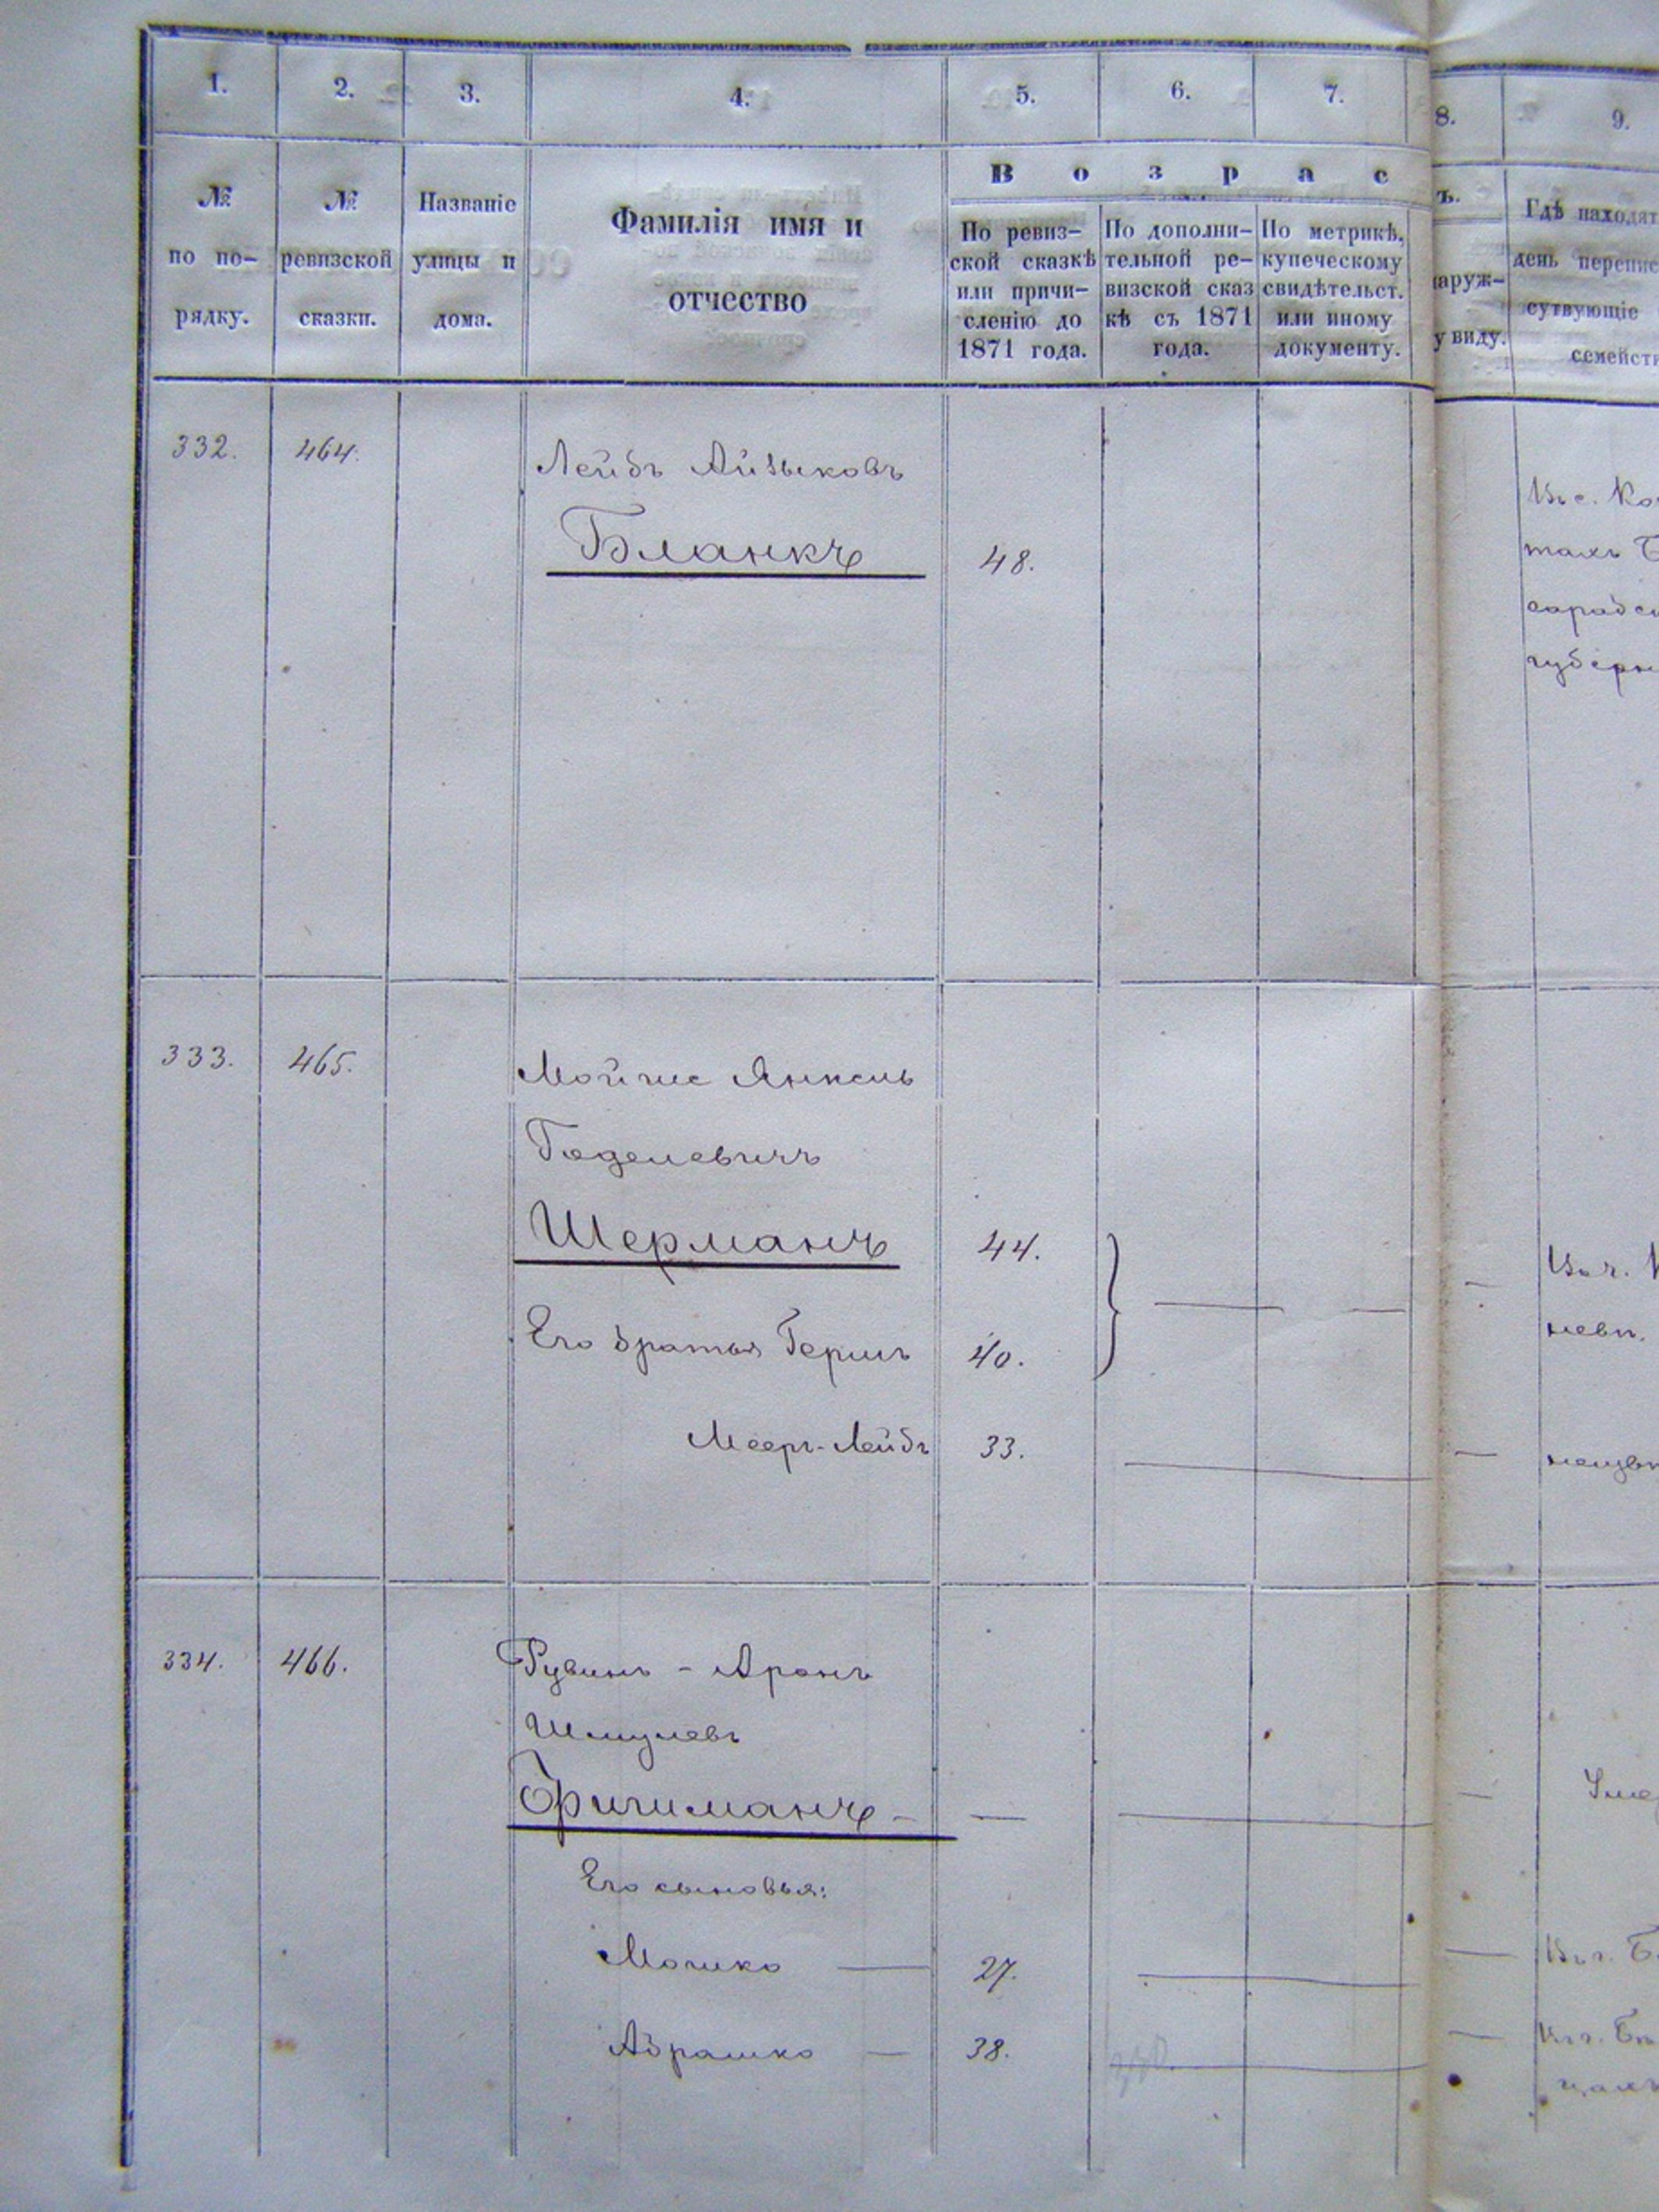 1. 2. 3. 4. 5. 6. 7. 8. 9.
В о з р а с ъ.
№ по по-рядку.
№ ревизской сказки.
Названіе улицы и дома.
Фамилія имя и отчество
По ревиз-ской сказкѣ или причи-сленію до 1871 года.
По дополни-тельной ре-визской сказ кѣ съ 1871 года.
По метрикѣ, купеческому свидѣтельст. или иному документу.
наруж-у виду.
Гдѣ находят
день перепис
сутвующіе
семейст
332. 464. Лейбъ Айзыковъ
Бланкъ 48.
губерн
333. 465. Мойше Янкель
Годелевичъ
Шерманъ 44.
Его братья Гершъ 40.
Мееръ-Лейбъ 33.
334. 466. Рувинъ - Аронъ
Шмулевъ
Фигиманъ - —
Его сыновья:
Мошко — 27.
Абрашко — 38.